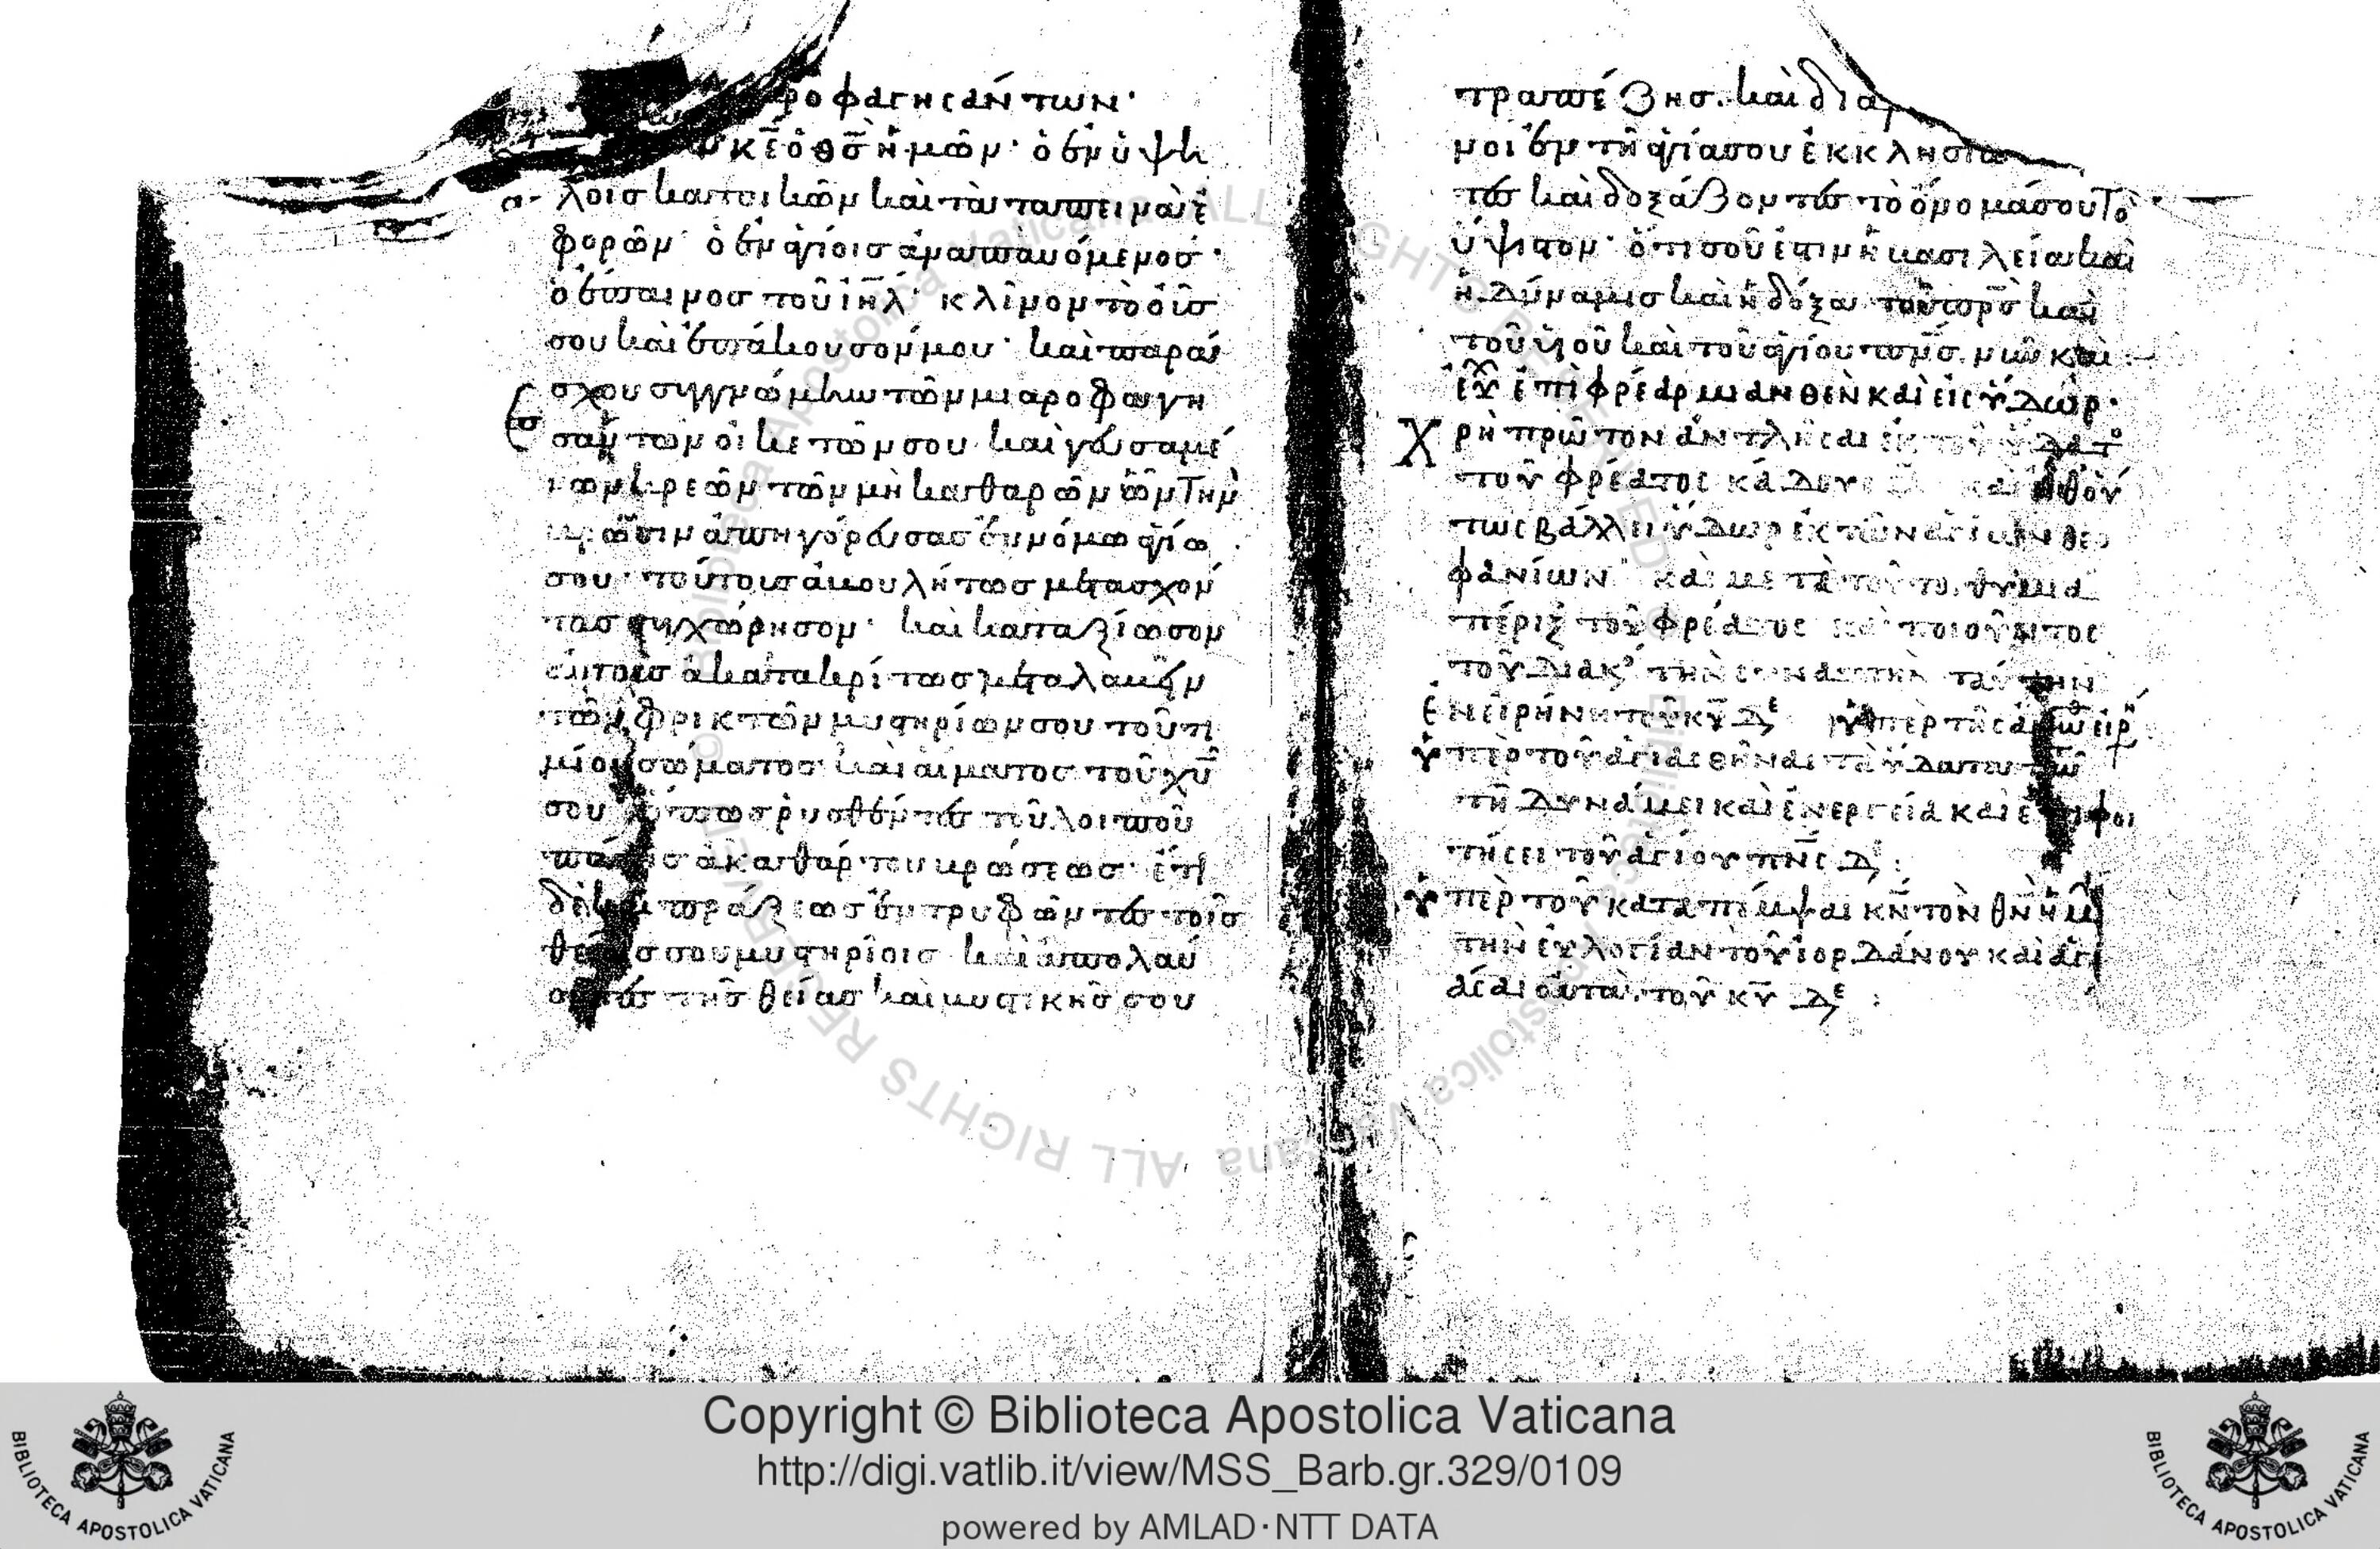 ροφαγησάντων·
κε ὁ θς ἡμῶν· ὁ ἐν ὑψη
λοῖς κατοικῶν καὶ τὰ ταπεινὰ ἐ
φορῶν· ὁ ἐν ἁγίοις ἀναπαυόμενος·
ὁ ἔπαινος τοῦ ιηλ· κλῖνον τὸ οὖς
σου καὶ ἐπάκουσόν μου· καὶ παρά
σχου συγγνώμην τῶν μιαροφαγη
σάντων οἰκετῶν σου καὶ γευσαμέ
νων κρεῶν τῶν μὴ καθαρῶν ὧν τὴν
βρῶσιν ἀπηγόρευσας ἐν νόμω ἁγίω
σου· τούτοις ἀκουλήτως μετασχόν
τας συγχώρησον· καὶ καταξίωσον
αὐτοὺς ἀκατακρίτως μεταλαβεῖν
τῶν φρικτῶν μυστηρίων σου τοῦ τι
μίου σώματος καὶ αἵματος τοῦ χυ
σου ὅπως ῥυσθέντες τοῦ λοιποῦ
πάσης ἀκαθάρτου βρώσεως ἔτι
πράξεως ἐντρυφῶντες τοῖς
θείοις σου μυστηρίοις καὶ ἀπολαύ
οντες τῆς θείας καὶ μυστικῆς σου
τραπέζης. καὶ δια
μοι ἐν τῆ ἁγία σου ἐκκλησία
τες καὶ δοξάζοντες τὸ ὄνομά σου τὸ
ὕψιστον· ὅτι σοῦ ἐστιν ἡ βασιλεία καὶ
ἡ δύναμις καὶ ἡ δόξα τοῦ πρς καὶ
τοῦ υἱοῦ καὶ τοῦ ἁγίου πνς νῦν καὶ
εὐχ ἐπὶ φρέαρ μιανθὲν καὶ εἰς ὕδωρ·
Χρὴ πρῶτον ἀντλῆσαι ἐκ τοῦ ὕδατο
τοῦ φρέατος κάδους καὶ εἶθ οὕ
τως βάλλει ὕδωρ ἐκ τῶν ἁγίων θεο
φανίων καὶ μετὰ τοῦτο θυμιᾶ
πέριξ τοῦ φρέατος καὶ ποιοῦντος
τοῦ διακο τὴν συναπτὴν ταύτην
ἐν εἰρήνη τοῦ κυ δε ὑπὲρ τῆς ἄνω εἰρη
ὑπὲρ τοῦ ἁγιασθῆναι τὸ ὕδωρ τοῦτο
τῆ δυνάμει καὶ ἐνεργεία καὶ ἐπιφοι
τήσει τοῦ ἁγίου πνς δε:
ὑπὲρ τοῦ καταπέμψαι κν τὸν θν ἡμ
τὴν εὐλογίαν τοῦ ἰορδάνου καὶ ἁγι
άσαι αὐτὰ τοῦ κυ δε:
Copyright © Biblioteca Apostolica Vaticana
http://digi.vatlib.it/view/MSS_Barb.gr.329/0109
powered by AMLAD·NTT DATA
BIBLIOTECA APOSTOLICA VATICANA
BIBLIOTECA APOSTOLICA VATICANA